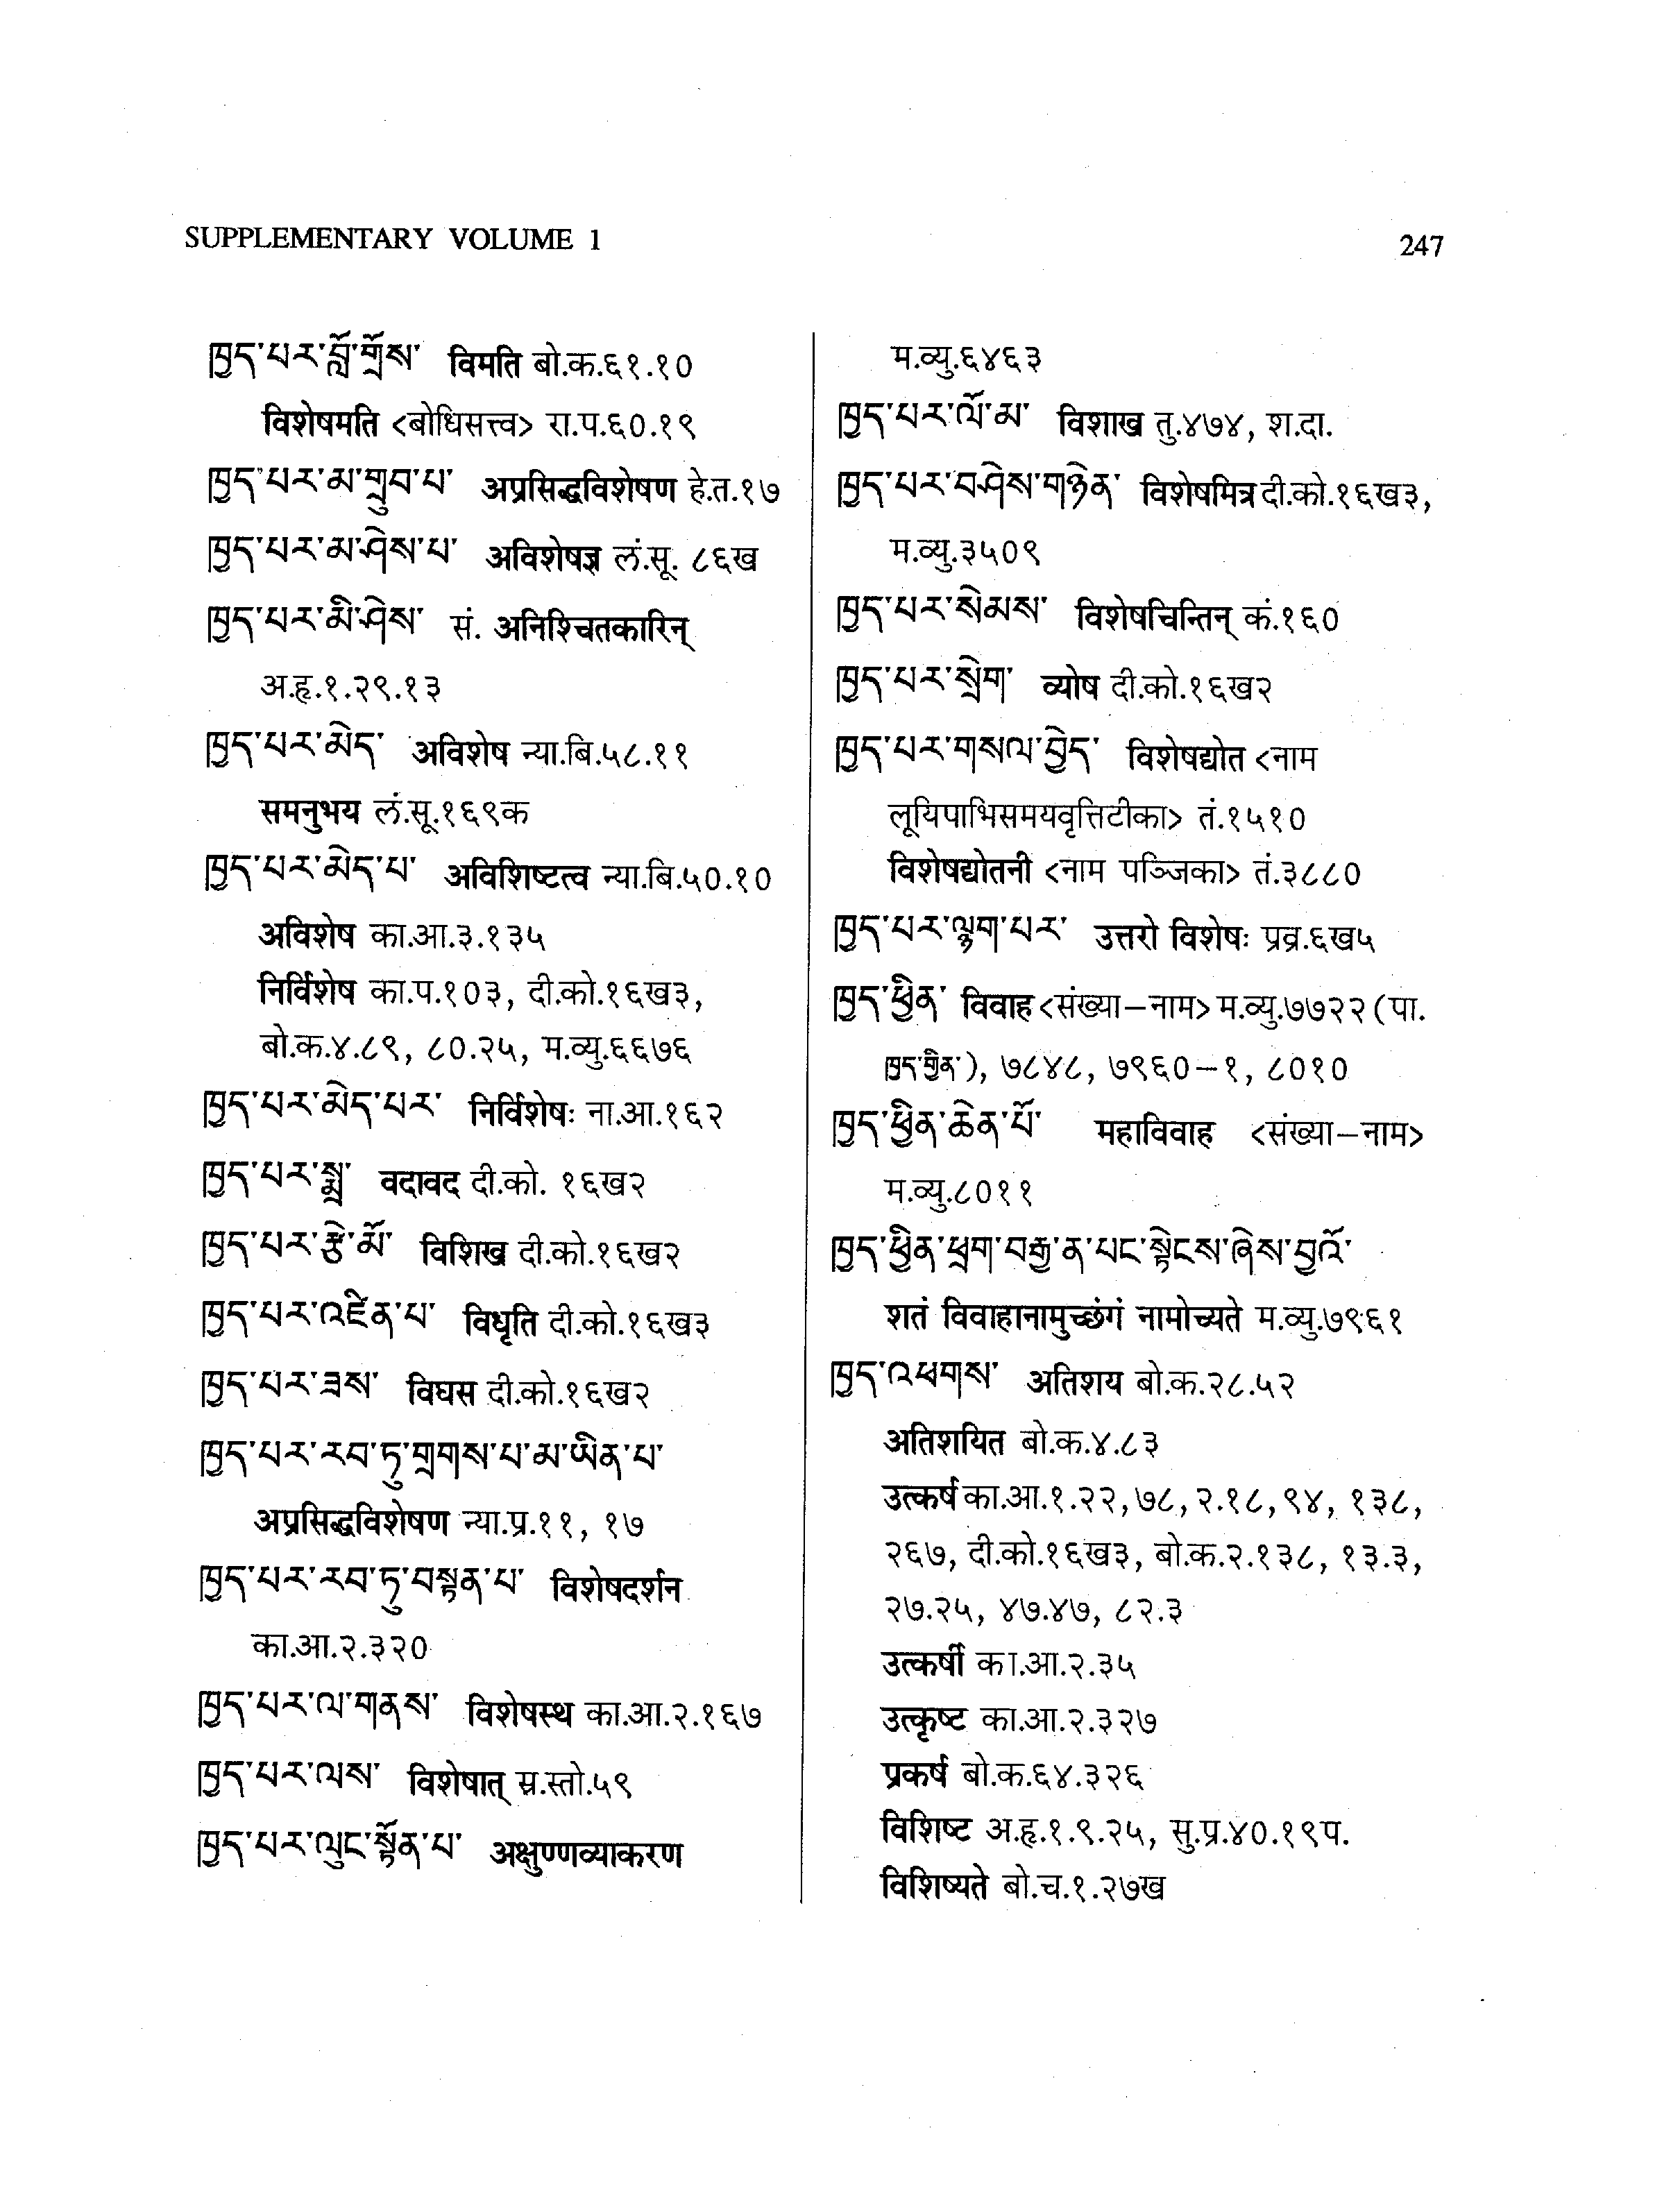 SUPPLEMENTARY VOLUME 1
247
ཁྱད་པར་བློ་གྲོས་ विमति बो.क.६१.१०
विशेषमति <बोधिसत्त्व> रा.प.६०.१९
ཁྱད་པར་མ་གྲུབ་པ་ अप्रसिद्धविशेषण हे.त.१७
ཁྱད་པར་མ་ཤེས་པ་ अविशेषज्ञ लं.सू. ८६ख
ཁྱད་པར་མི་ཤེས་ सं. अनिश्चितकारिन्
अ.हृ.१.२९.१३
ཁྱད་པར་མེད་ अविशेष न्या.बि.५८.११
समनुभय लं.सू.१६९क
ཁྱད་པར་མེད་པ་ अविशिष्टत्व न्या.बि.५०.१०
अविशेष का.आ.३.१३५
निर्विशेष का.प.१०३, दी.को.१६ख३,
बो.क.४.८९, ८०.२५, म.व्यु.६६७६
ཁྱད་པར་མེད་པར་ निर्विशेषः ना.आ.१६२
ཁྱད་པར་སྨྲ་ वदावद दी.को. १६ख२
ཁྱད་པར་རྩེ་མོ་ विशिख दी.को.१६ख२
ཁྱད་པར་འཛིན་པ་ विधृति दी.को.१६ख३
ཁྱད་པར་ཟས་ विघस दी.को.१६ख२
ཁྱད་པར་རབ་ཏུ་གྲགས་པ་མ་ཡིན་པ་
अप्रसिद्धविशेषण न्या.प्र.११, १७
ཁྱད་པར་རབ་ཏུ་བསྟན་པ་ विशेषदर्शन
का.आ.२.३२०
ཁྱད་པར་ལ་གནས་ विशेषस्थ का.आ.२.१६७
ཁྱད་པར་ལས་ विशेषात् स्र.स्तो.५९
ཁྱད་པར་ལུང་སྟོན་པ་ अक्षुण्णव्याकरण
म.व्यु.६४६३
ཁྱད་པར་ལོ་མ་ विशाख तु.४७४, श.दा.
ཁྱད་པར་བཤེས་གཉེན་ विशेषमित्र दी.को.१६ख३,
म.व्यु.३५०९
ཁྱད་པར་སེམས་ विशेषचिन्तिन् कं.१६०
ཁྱད་པར་སྲེག་ व्योष दी.को.१६ख२
ཁྱད་པར་གསལ་བྱེད་ विशेषद्योत <नाम
लूयिपाभिसमयवृत्तिटीका> तं.१५१०
विशेषद्योतनी <नाम पञ्जिका> तं.३८८०
ཁྱད་པར་ལྷག་པར་ उत्तरो विशेषः प्रव्र.६ख५
ཁྱད་ཕྱིན་ विवाह <संख्या–नाम> म.व्यु.७७२२ (पा.
ཁྱད་གྱིན་), ७८४८, ७९६०–१, ८०१०
ཁྱད་ཕྱིན་ཆེན་པོ་ महाविवाह <संख्या–नाम>
म.व्यु.८०११
ཁྱད་ཕྱིན་ཕྲག་བརྒྱ་ན་པང་སྟེངས་ཞེས་བྱའོ་
शतं विवाहानामुच्छंगं नामोच्यते म.व्यु.७९६१
ཁྱད་འཕགས་ अतिशय बो.क.२८.५२
अतिशयित बो.क.४.८३
उत्कर्ष का.आ.१.२२, ७८, २.१८, ९४, १३८,
२६७, दी.को.१६ख३, बो.क.२.१३८, १३.३,
२७.२५, ४७.४७, ८२.३
उत्कर्षी का.आ.२.३५
उत्कृष्ट का.आ.२.३२७
प्रकर्ष बो.क.६४.३२६
विशिष्ट अ.हृ.१.९.२५, सु.प्र.४०.१९प.
विशिष्यते बो.च.१.२७ख